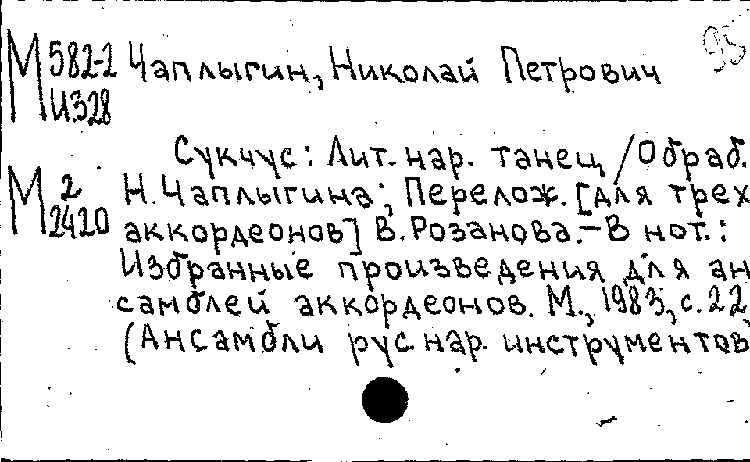 М 582-2 Чаплыгин, Николай Петрович 95
И328
Сукчус: Лит. нар. танец / Обраб.
М 2 Н. Чаплыгина; Перелож. [для трех
2420 аккордеонов] В. Розанова. – В нот.:
Избранные произведения для ан
самблей аккордеонов. М., 1983, с. 22
(Ансамбли рус. нар. инструментов